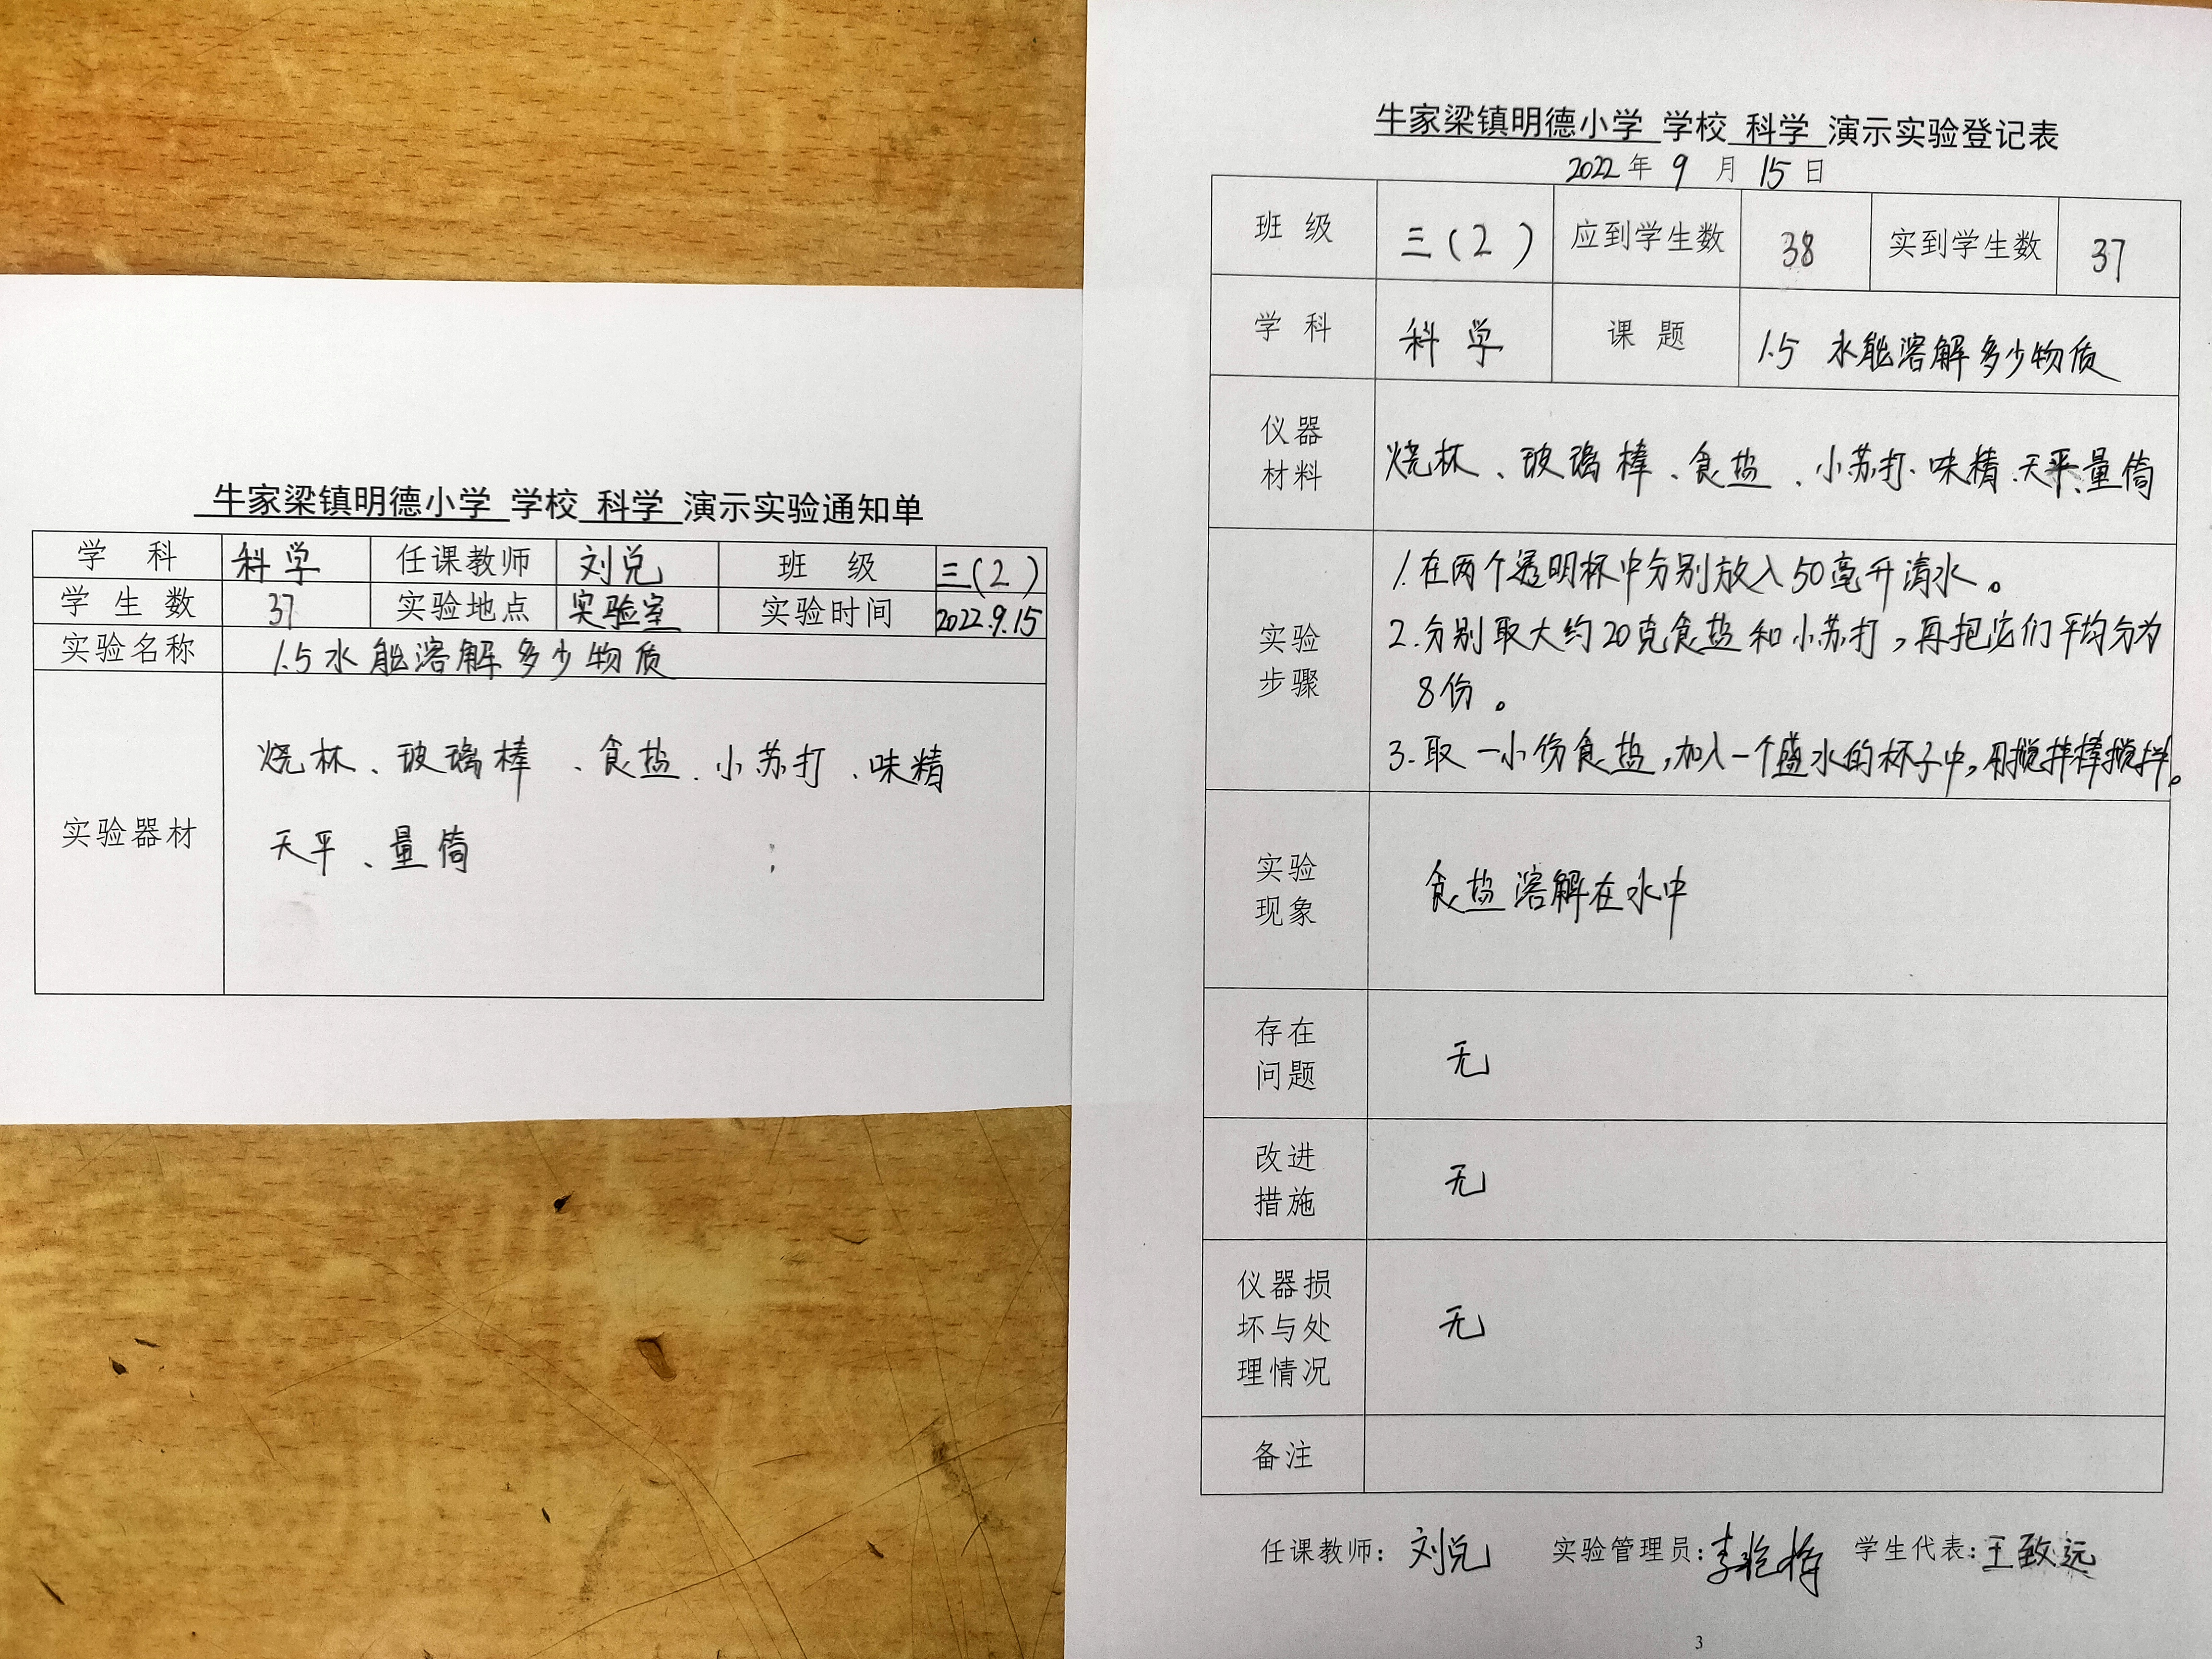 牛家梁镇明德小学 学校 科学 演示实验通知单
学 科 科学 任课教师 刘兑 班 级 三(2)
学生数 37 实验地点 实验室 实验时间 2022.9.15
实验名称 1.5水能溶解多少物质
实验器材
烧杯、玻璃棒、食盐、小苏打、味精
天平、量筒
牛家梁镇明德小学 学校 科学 演示实验登记表
2022年 9 月 15 日
班 级 三(2) 应到学生数 38 实到学生数 37
学 科 科学 课 题 1.5 水能溶解多少物质
仪器
材料
烧杯、玻璃棒、食盐、小苏打、味精、天平、量筒
实验
步骤
1.在两个透明杯中分别放入50毫升清水。
2.分别取大约20克食盐和小苏打,再把它们平均分为
8份。
3.取一小份食盐,加入一个盛水的杯子中,用搅拌棒搅拌。
实验
现象
食盐溶解在水中
存在
问题
无
改进
措施
无
仪器损
坏与处
理情况
无
备注
任课教师: 刘兑 实验管理员: 学生代表: 王致远
3